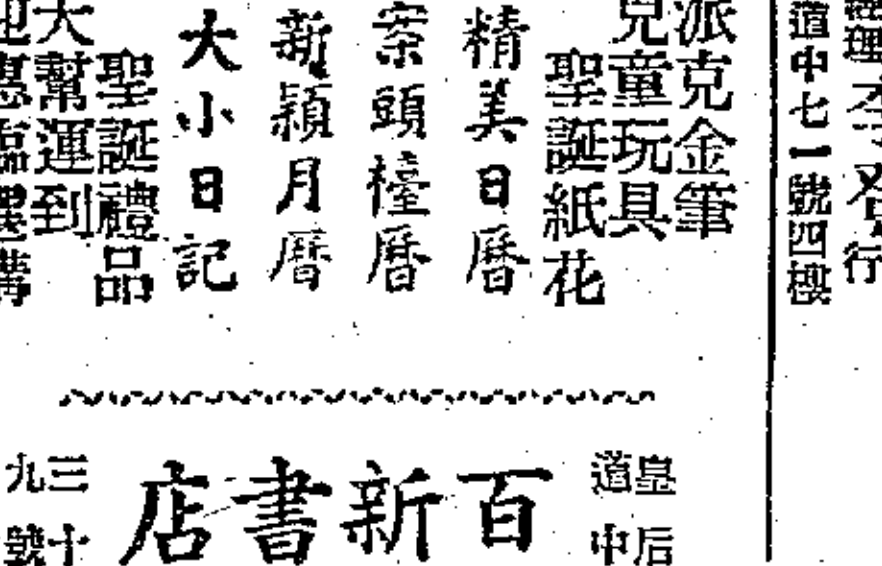 道中七一號四樓
派克金筆
兒童玩具
聖誕紙花
精美日曆
案頭檯曆
新穎月曆
大小日記
聖誕禮品
大幫運到
皇后
道中
百新書店
三十
九號